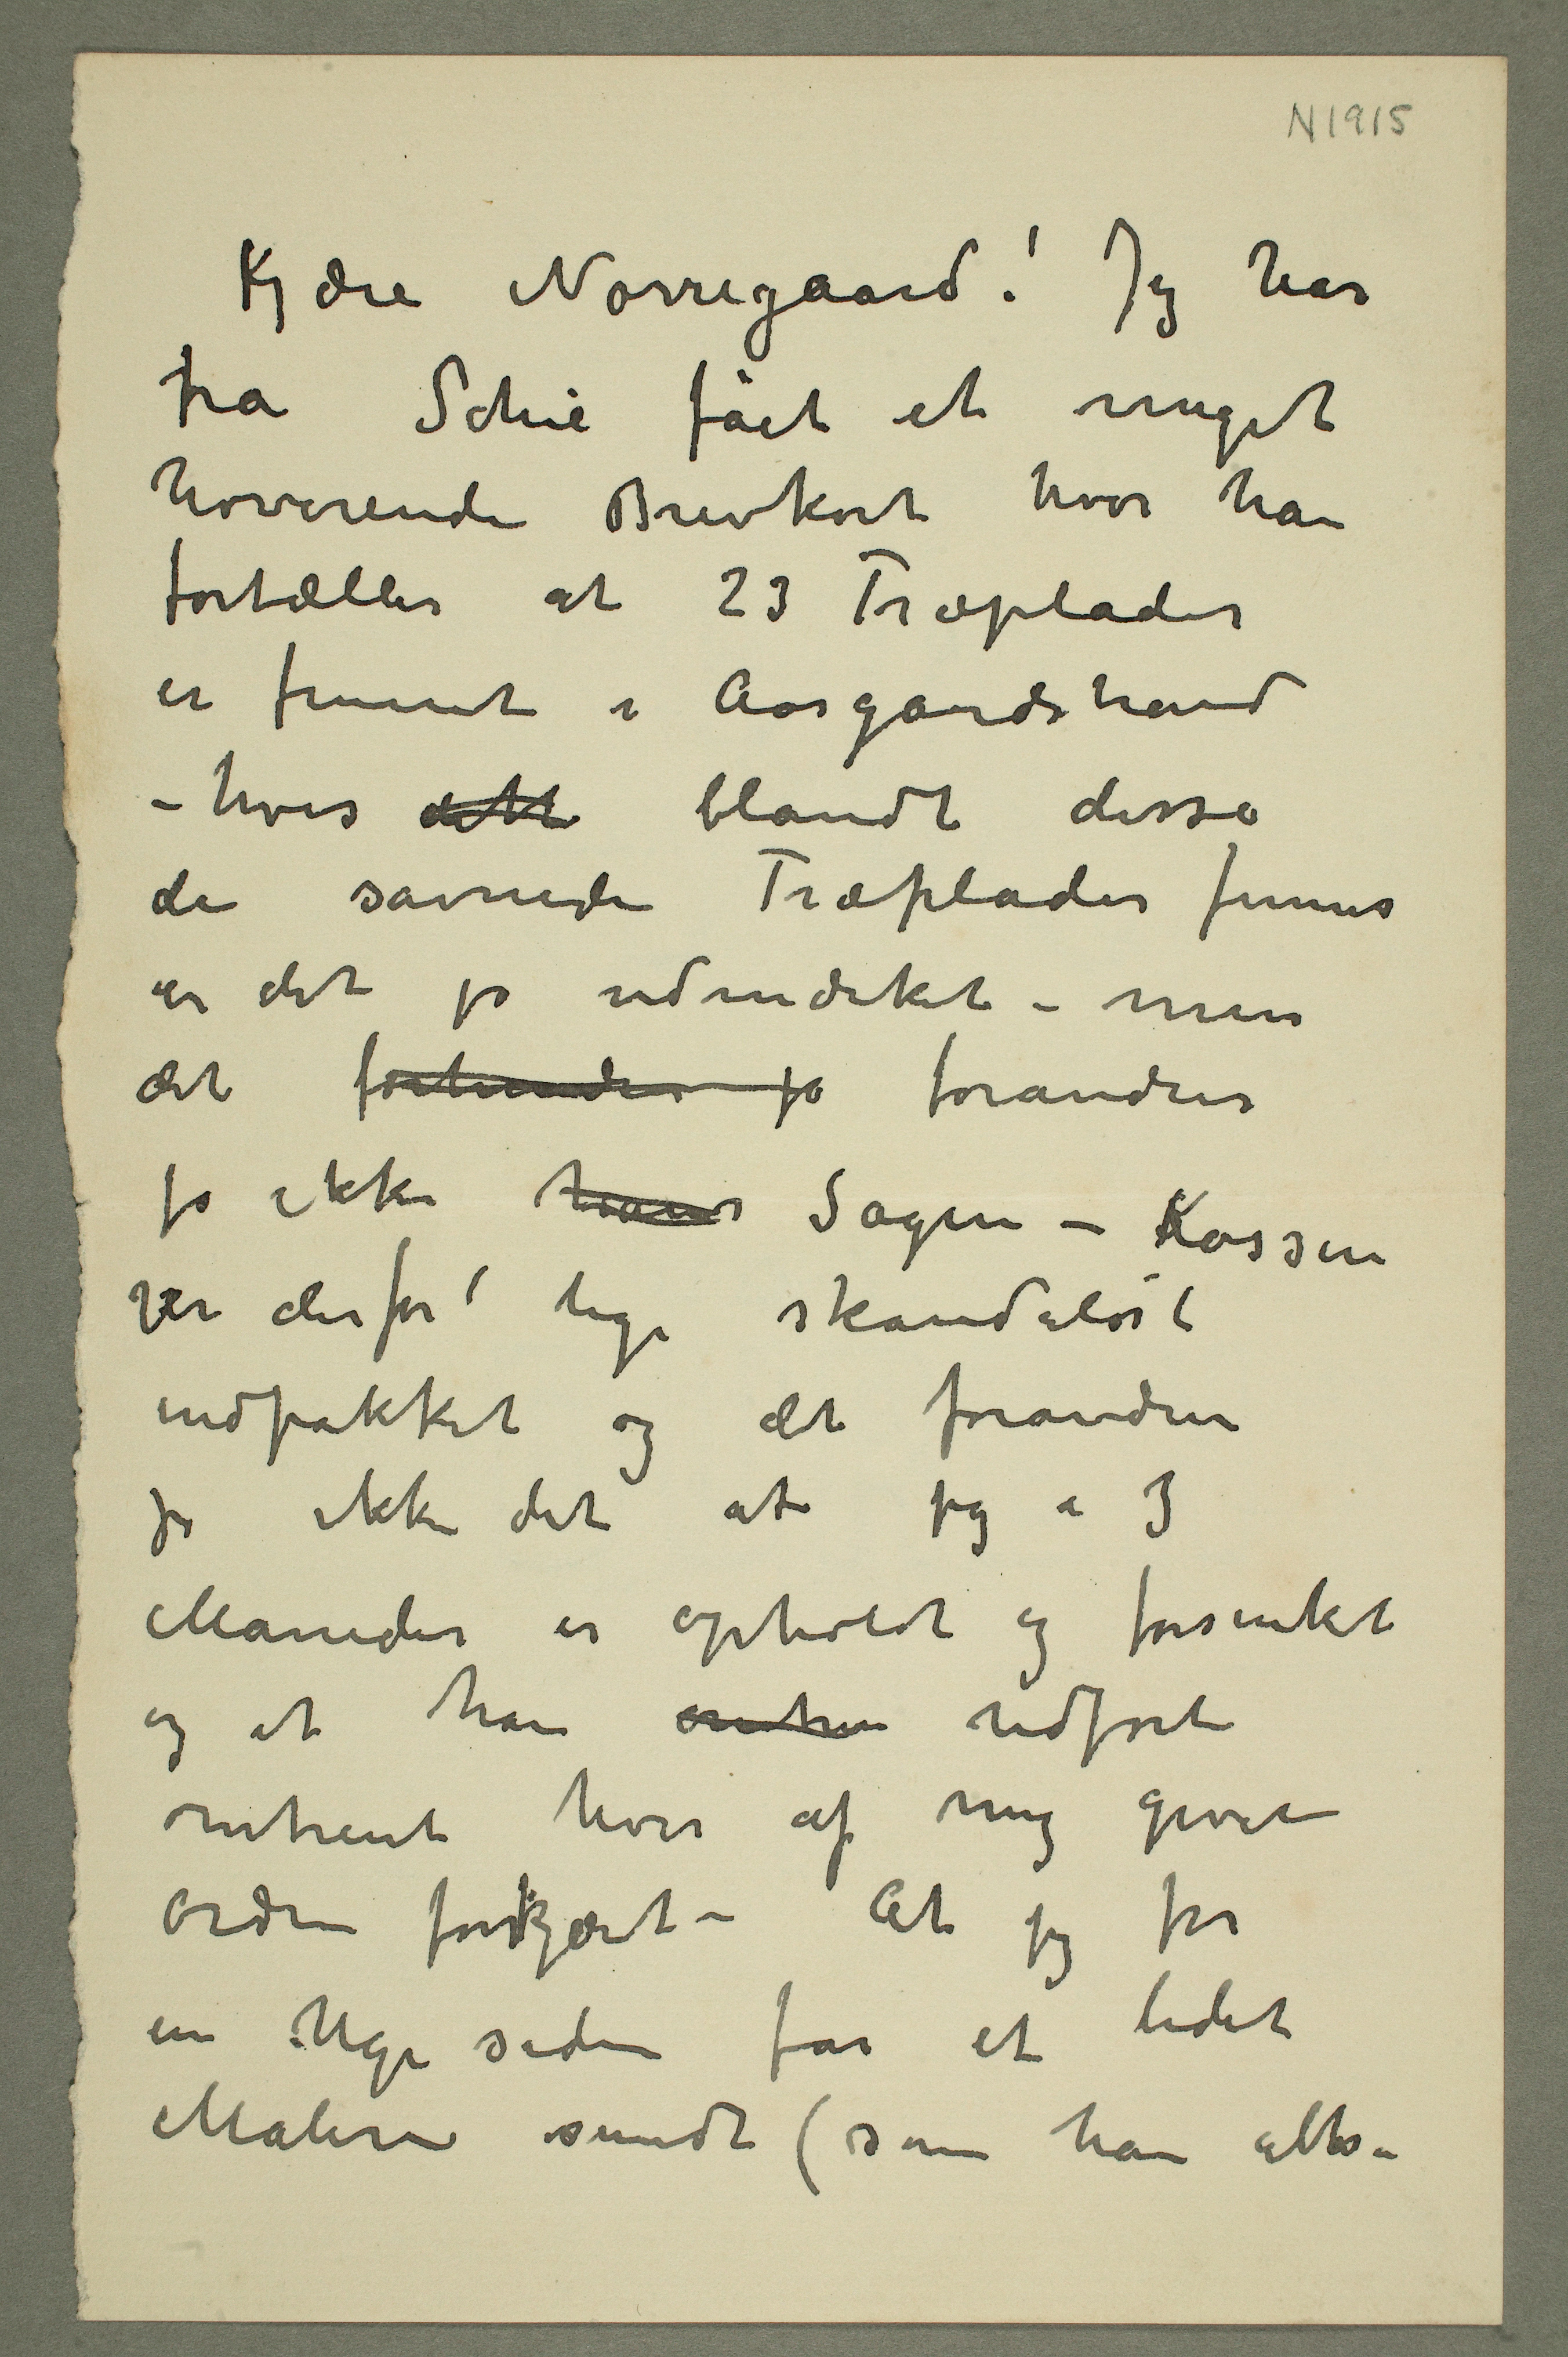 N1915
Kjære Nørregaard! Jeg har
fra Schie fået et meget
hoverende Brevkort hvor han
fortæller at 23 Træplader
er funnet i Aasgaardstrand
– hvis dette blandt disse
de savnede Træplader finnes
er det jo udmærket – men
det forhindrer jo forandrer
jo ikke hans Sagen – Kassen
er derfor lige skandaløst
indpakket og det forandrer
jo ikke det at jeg i 3
Maaneder er opholdt og forsinket
og at han omtren udført
omtrent hver af mig givet
Ordre forkjært – At jeg for
en Uge siden far et lidet
Maleri sendt (som han altsa